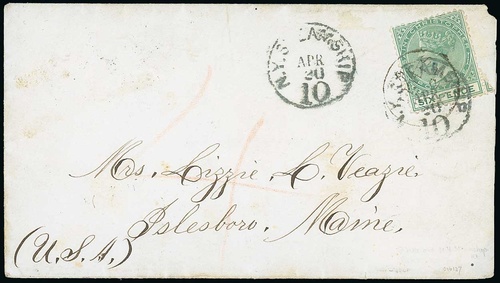 N.Y. STEAMSHIP
APR
20
10
SIXPENCE
10
Mrs. Lizzie L. Veazie.
Islesboro, Maine,
(U.S.A.)